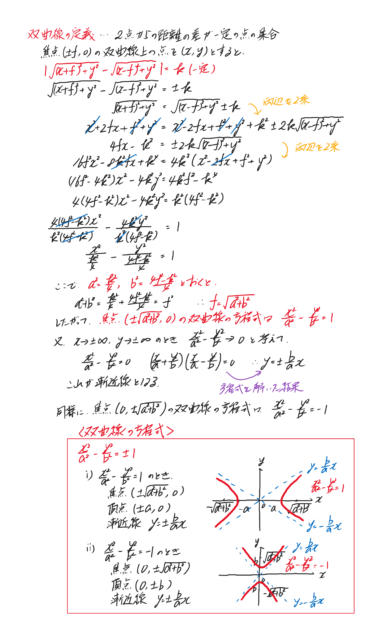 双曲線の定義… 2点からの距離の差が一定の点の集合
焦点(±f, 0)の双曲線上の点を(x, y)とすると、
|√((x+f)²+y²) - √((x-f)²+y²)| = k (一定)
√((x+f)²+y²) - √((x-f)²+y²) = ±k
√((x+f)²+y²) = √((x-f)²+y²) ± k
両辺を2乗
x²+2fx+f²+y² = x²-2fx+f²+y²+k² ± 2k√((x-f)²+y²)
4fx - k² = ±2k√((x-f)²+y²)
両辺を2乗
16f²x² - 8k²fx + k⁴ = 4k²(x²-2fx+f²+y²)
(16f²-4k²)x² - 4k²y² = 4k²f² - k⁴
4(4f²-k²)x² - 4k²y² = k²(4f²-k²)
4(4f²-k²)x²/k²(4f²-k²) - 4k²y²/k²(4f²-k²) = 1
x²/(k²/4) - y²/((4f²-k²)/4) = 1
ここで a²=k²/4, b²=(4f²-k²)/4 とおくと、
a²+b² = k²/4 + (4f²-k²)/4 = f² ∴ f=√(a²+b²)
したがって、焦点(±√(a²+b²), 0)の双曲線の方程式は x²/a² - y²/b² = 1
又 x→±∞, y→±∞のとき x²/a² - y²/b² → 0 と考えて
x²/a² - y²/b² = 0 (x/a + y/b)(x/a - y/b) = 0 ∴ y=±(b/a)x
これが漸近線となる
方程式を解いた結果
同様に、焦点(0, ±√(a²+b²))の双曲線の方程式は x²/a² - y²/b² = -1
<双曲線の方程式>
x²/a² - y²/b² = ±1
i) x²/a² - y²/b² = 1 のとき
焦点 (±√(a²+b²), 0)
頂点 (±a, 0)
漸近線 y=±(b/a)x
y
y=(b/a)x
x²/a² - y²/b² = 1
-√(a²+b²) -a 0 a √(a²+b²) x
y=-(b/a)x
ii) x²/a² - y²/b² = -1 のとき
焦点 (0, ±√(a²+b²))
頂点 (0, ±b)
漸近線 y=±(b/a)x
y
y=(b/a)x
√(a²+b²)
x²/a² - y²/b² = -1
b
0
x
-b
-√(a²+b²)
y=-(b/a)x